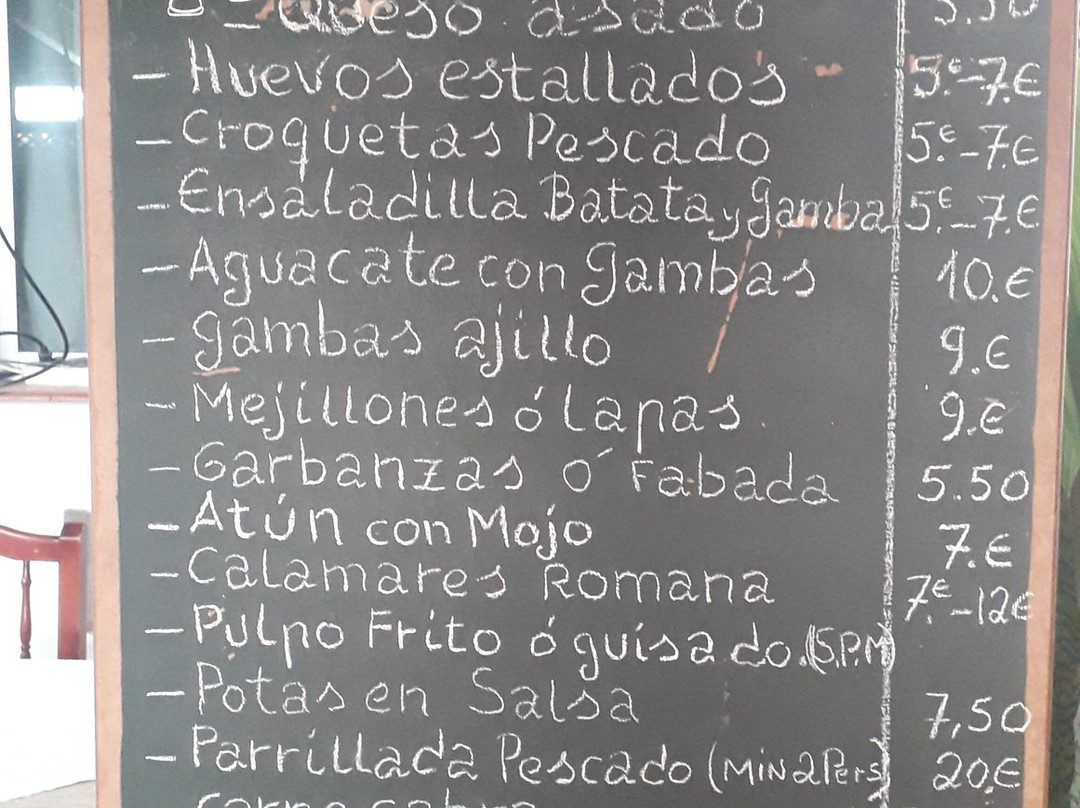 - Queso asado 5.50
- Huevos estallados 5.€-7.€
- Croquetas Pescado 5.€-7.€
- Ensaladilla Batata y gamba 5.€-7.€
- Aguacate con gambas 10.€
- gambas ajillo 9.€
- Mejillones ó lapas. 9.€
- Garbanzas ó Fabada 5.50
- Atún con Mojo 7.€
- Calamares Romana 7.€-12€
- Pulpo Frito ó guisado.(S.P.M)
- Potas en Salsa 7,50
- Parrillada Pescado (MIN 2 Pers) 20.€
Carne cabra